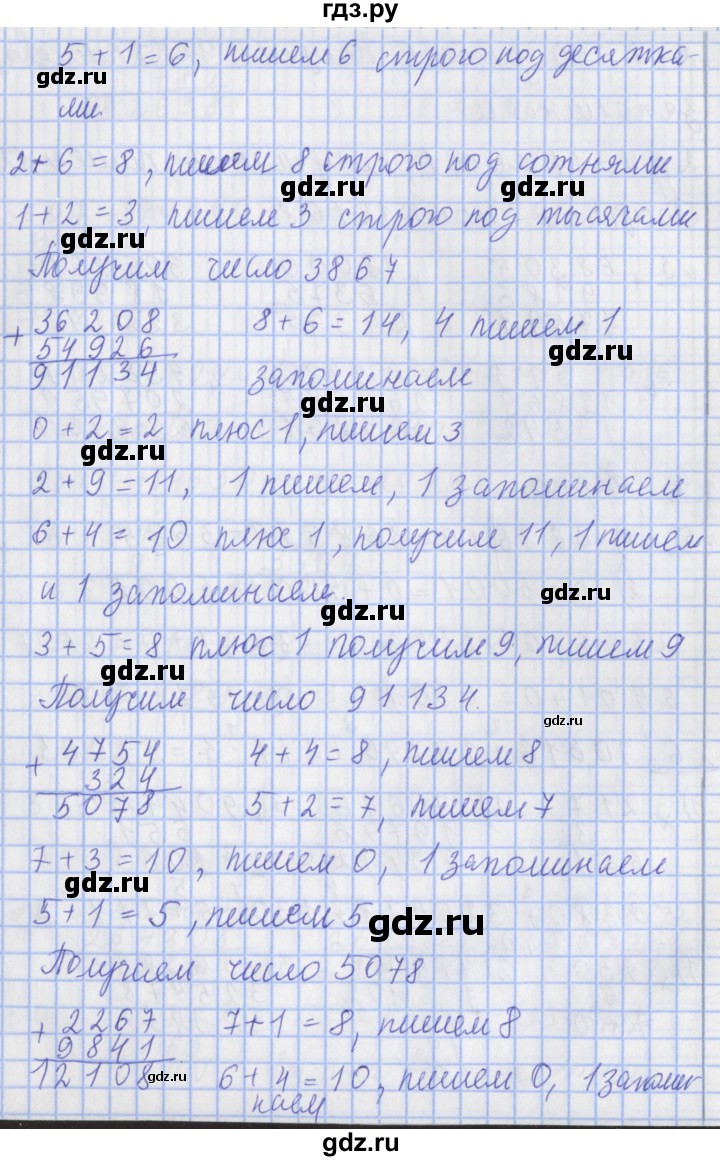 гдз.ру
5 + 1 = 6, пишем 6 строго под десятка-
gdz.ru
ми.
2 + 6 = 8, пишем 8 строго под сотнями
gdz.ru
gdz.ru
1 + 2 = 3, пишем 3 строго под тысячами
gdz.ru
gdz.ru
Получим число 3867
+ 36208
54926
91134
8 + 6 = 14, 4 пишем 1
gdz.ru
запоминаем
gdz.ru
0 + 2 = 2 плюс 1, пишем 3
gdz.ru
2 + 9 = 11, 1 пишем, 1 запоминаем
6 + 4 = 10 плюс 1, получим 11, 1 пишем
и 1 запоминаем.
gdz.ru
gdz.ru
3 + 5 = 8 плюс 1 получим 9, пишем 9
gdz.ru
Получим число 91134.
gdz.ru
+ 4754
324
5078
4 + 4 = 8, пишем 8
5 + 2 = 7, пишем 7
7 + 3 = 10, пишем 0, 1 запоминаем
gdz.ru
5 + 1 = 5, пишем 5
gdz.ru
Получаем число 5078
+ 2267
9841
12108
gdz.ru
7 + 1 = 8, пишем 8
6 + 4 = 10, пишем 0, 1 запоми
наем
gdz.ru